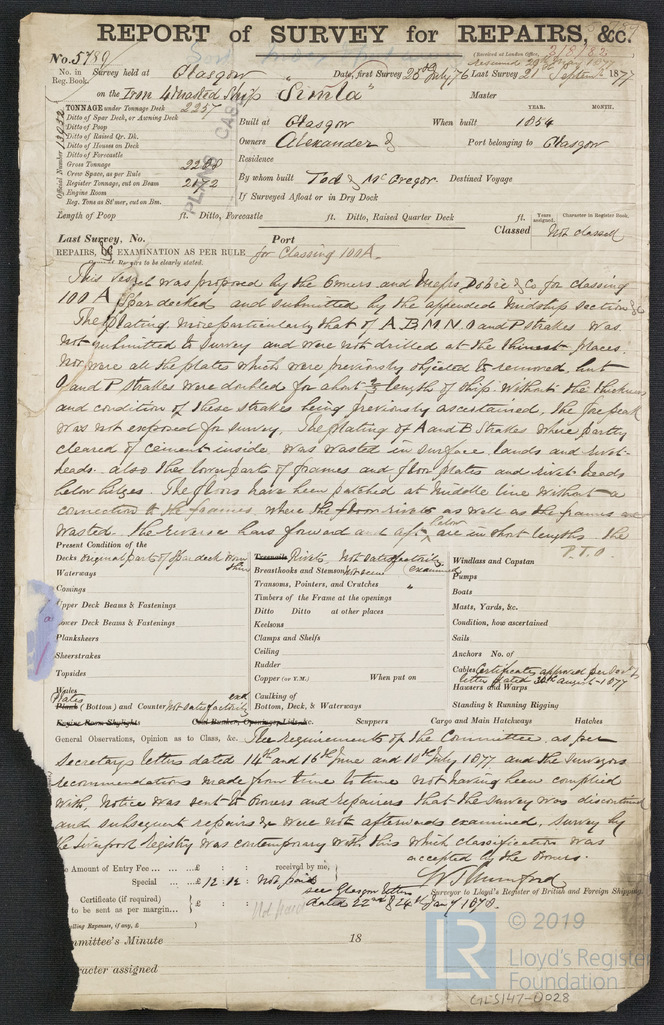 REPORT of SURVEY for REPAIRS, &c.
No. 5789 (Received at London Office, 3/8/82
Received 29th 1877
No. in Reg. Book. Survey held at Glasgow Date, first Survey 25th July 76 Last Survey 21 September 1877
on the Iron 4 Masted Ship "Simla" Master
TONNAGE under Tonnage Deck 2257
Ditto of Spar Deck, or Awning Deck
Ditto of Poop
Ditto of Raised Qr. Dk.
Ditto of Houses on Deck
Ditto of Forecastle
Gross Tonnage 2288
Crew Space, as per Rule
Register Tonnage, cut on Beam 2172
Engine Room
Reg. Tons as St'mer, cut on Bm.
Official Number
PLAN CASE
YEAR. MONTH.
Built at Glasgow When built 1854
Owners Alexander & Port belonging to Glasgow
Residence
By whom built Tod & McGregor Destined Voyage
If Surveyed Afloat or in Dry Dock
Length of Poop ft. Ditto, Forecastle ft. Ditto, Raised Quarter Deck ft.
Years assigned. Character in Register Book.
Last Survey, No. Port Classed Not classed
REPAIRS, EXAMINATION AS PER RULE for Classing 100A.
to be clearly stated.
This Vessel was proposed by the Owners and Messrs Dobie & Co for classing
100 A Spar decked and submitted by the appended Midship section &c
The plating more particularly that of A.B.M.N.O and P strakes was
not submitted to survey and were not drilled at the thinnest places.
Nor were all the plates which were previously objected to removed, but
and P strakes were doubled for about length of ship without the thickness
and condition of these strakes being previously ascertained. The fore peak
was not exposed for survey. The plating of A and B Strakes where partly
cleared of cement inside was wasted in surface, lands and rivet-
heads. also the lower parts of frames and floor plates and rivet heads
below bilges. The floors have been patched at middle line without a
connection to the frames, where the floor rivets as well as the frames are
wasted. The reverse bars forward and aft below are in short lengths. The
P.T.O.
Present Condition of the
Decks original part of spar deck worn thin
Waterways
Comings
Upper Deck Beams & Fastenings
Lower Deck Beams & Fastenings
Planksheers
Sheerstrakes
Topsides
Wales
Plates
Plank (Bottom) and Counter Not satisfactorily exd
Engine Room Skylights
Treenails Rivets, Not satisfactorily examined
Breasthooks and Stemson Not seen
Transoms, Pointers, and Crutches "
Timbers of the Frame at the openings
Ditto Ditto at other places
Keelsons
Clamps and Shelfs
Ceiling
Rudder
Copper (or Y.M.) When put on
Caulking of
Bottom, Deck, & Waterways
Coal Bunker, Openings, Lids, &c. Scuppers Cargo and Main Hatchways Hatches
Windlass and Capstan
Pumps
Boats
Masts, Yards, &c.
Condition, how ascertained
Sails
Anchors No. of
Cables Certificates approved per Secty's
letter dated 30th August 1877
Hawsers and Warps
Standing & Running Rigging
General Observations, Opinion as to Class, &c. The requirements of the Committee, as per
Secretarys letters dated 14th and 16th June and 10th July 1877 and the Surveyors
recommendations made from time to time not having been complied
with, notice was sent to Owners and repairers that the survey was discontinued
and subsequent repairs &c were not afterwards examined, survey by
the Liverpool Registry was contemporary with this which classification was
accepted by the owners.
The Amount of Entry Fee ... ...£ : : received by me,
Special ... ...£ 12 : 12 : Not paid
see Glasgow letters
dated 22nd & 24th Jany 1878.
Certificate (if required)
to be sent as per margin... £ : :
Not paid
elling Expenses, if any, £
W. J. Mumford
Surveyor to Lloyd's Register of British and Foreign Shipping
mmittee's Minute 18
racter assigned
© 2019
LR
Lloyd's Register
Foundation
GLS147-0028